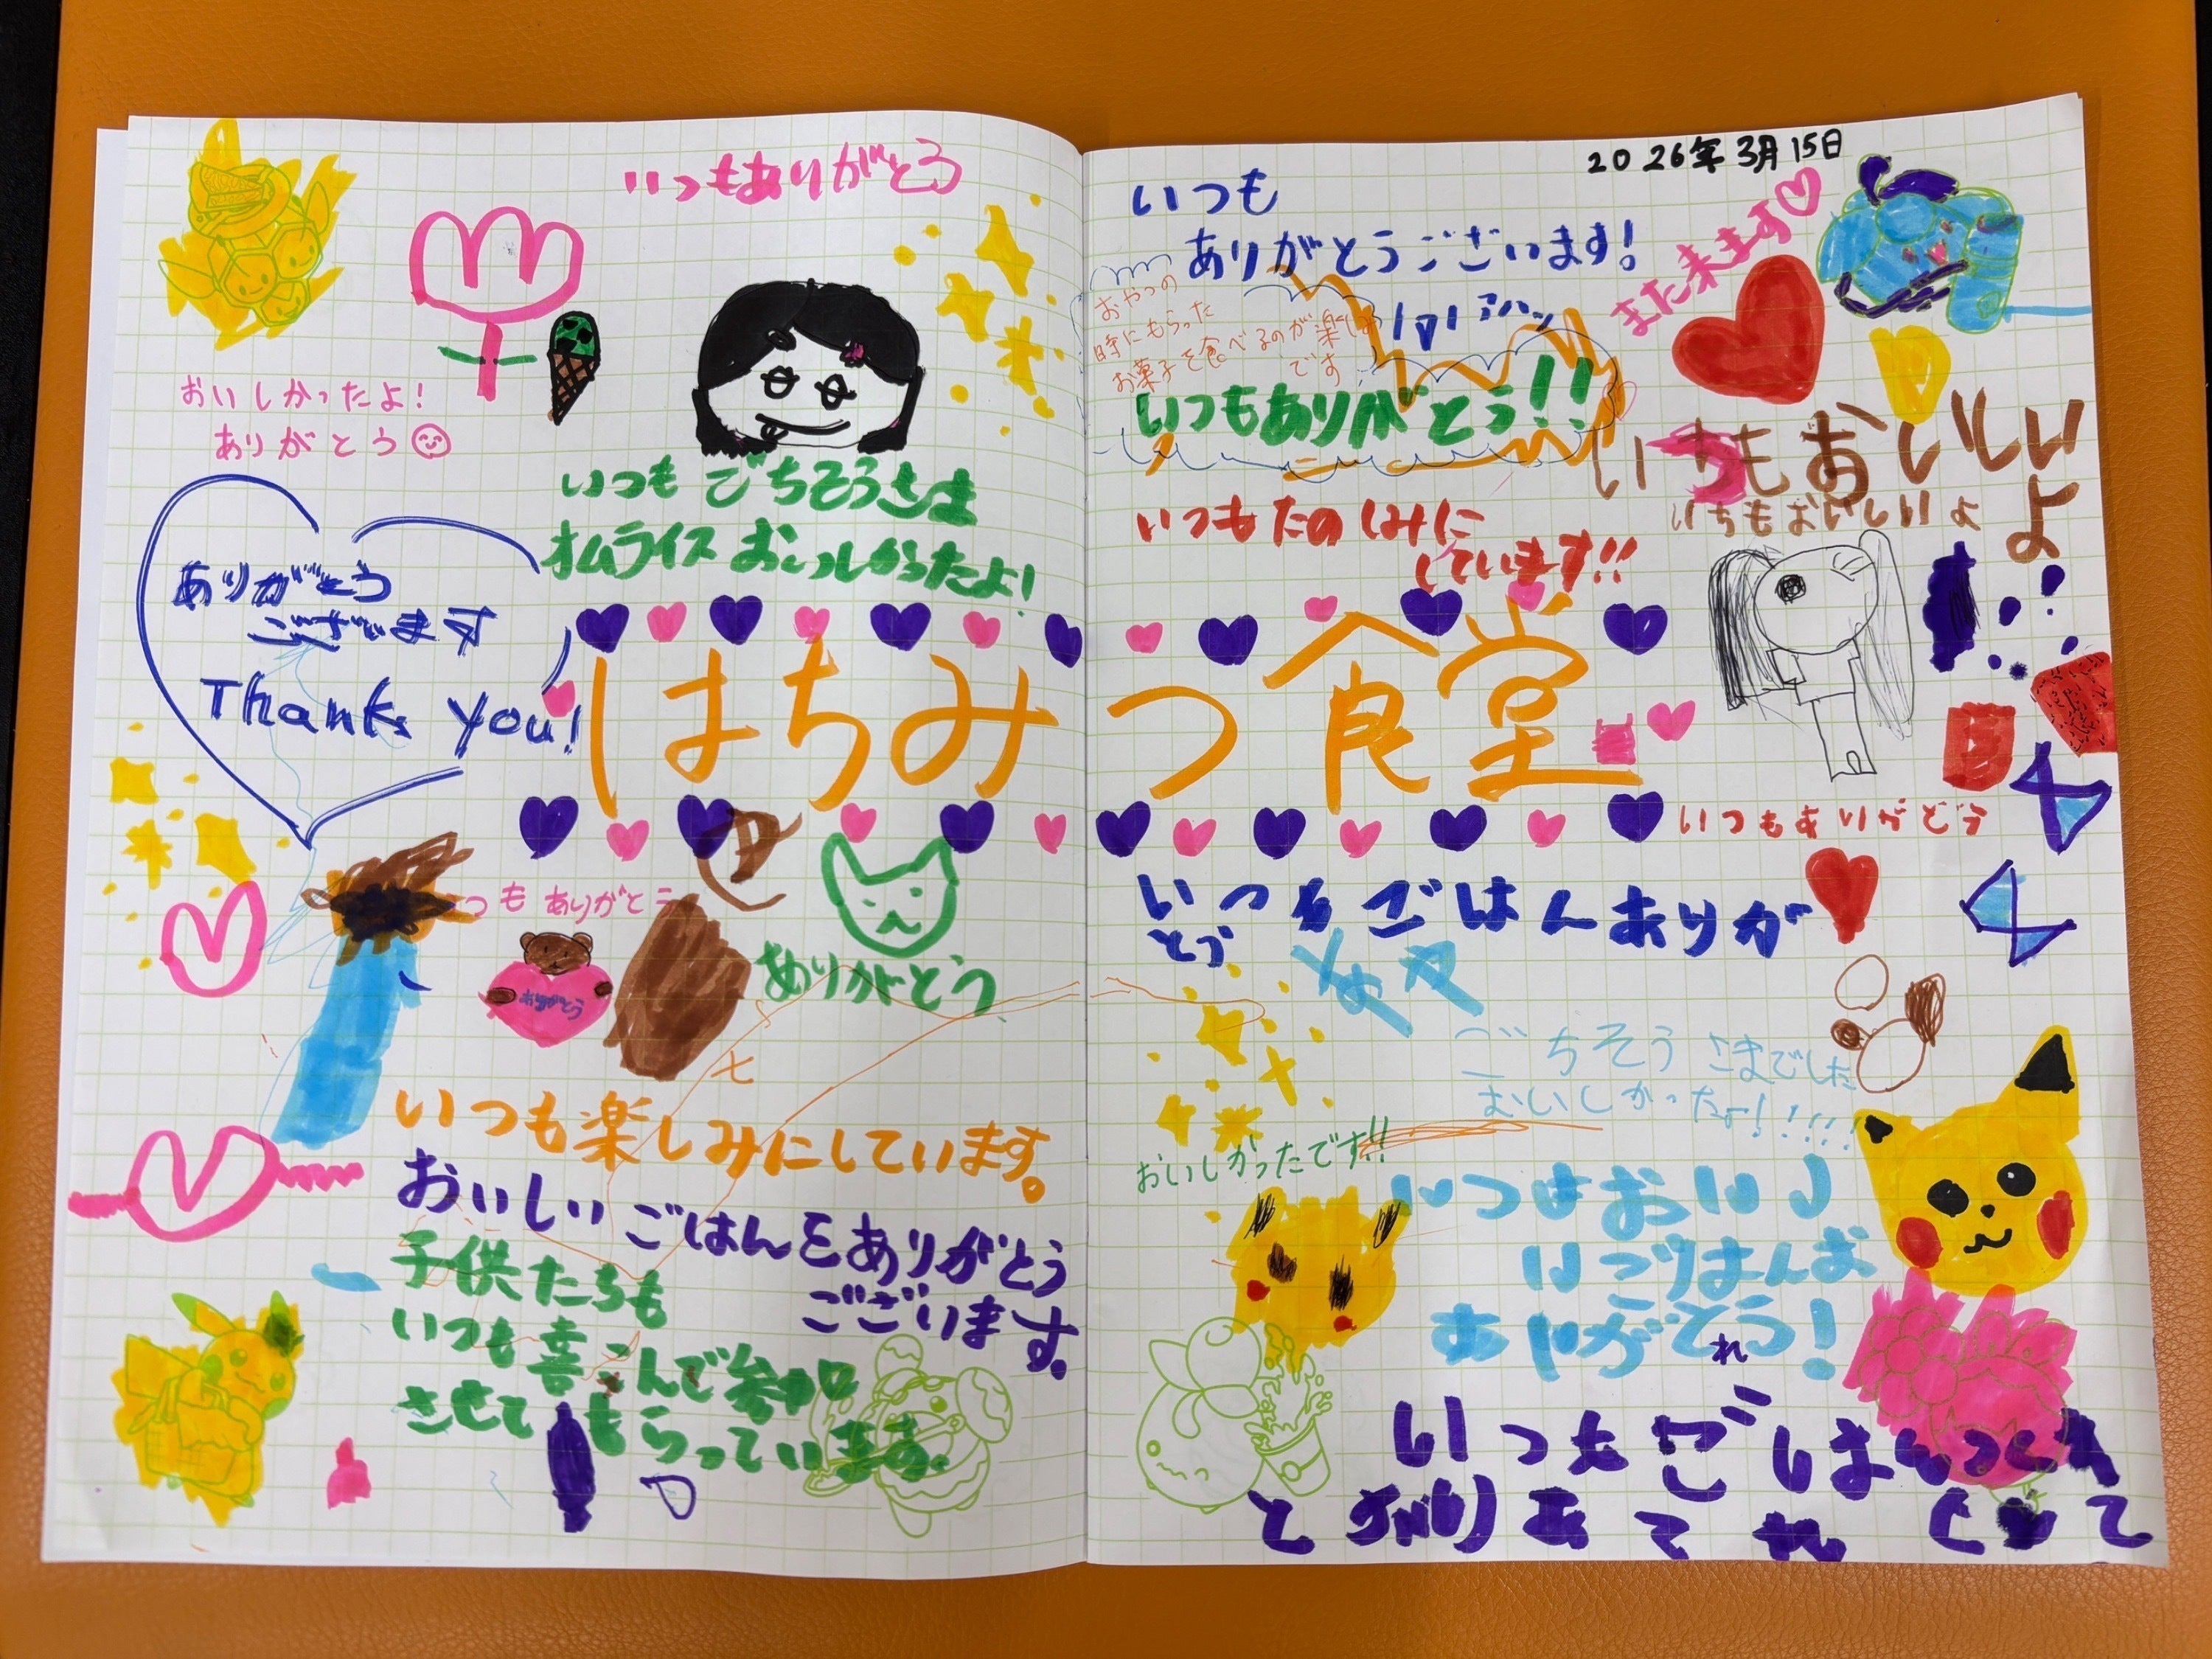 いつもありがとう
おいしかったよ!
ありがとう
いつもごちそうさま
オムライスおいしかったよ!
ありがとう
ございます
Thank you!
はちみつ食堂
いつもありがとう
ありがとう
ありがとう
いつも楽しみにしています。
おいしいごはんをありがとう
ございます。
子供たちも
いつも喜こんで参加
させてもらっています。
2026年3月15日
いつも
ありがとうございます!
また来ます♡
おやつの
時にもらった
お菓子を食べるのが楽しみ
です
いつもありがとう!!
いつもおいしい
よ
いちもおいしいよ
いつもたのしみに
しています!!
いつもありがとう
いつもごはんありが
とう
ごちそうさまでした
おいしかったよ!!!!!
おいしかったです!!
ありがとう!
いつもごはん